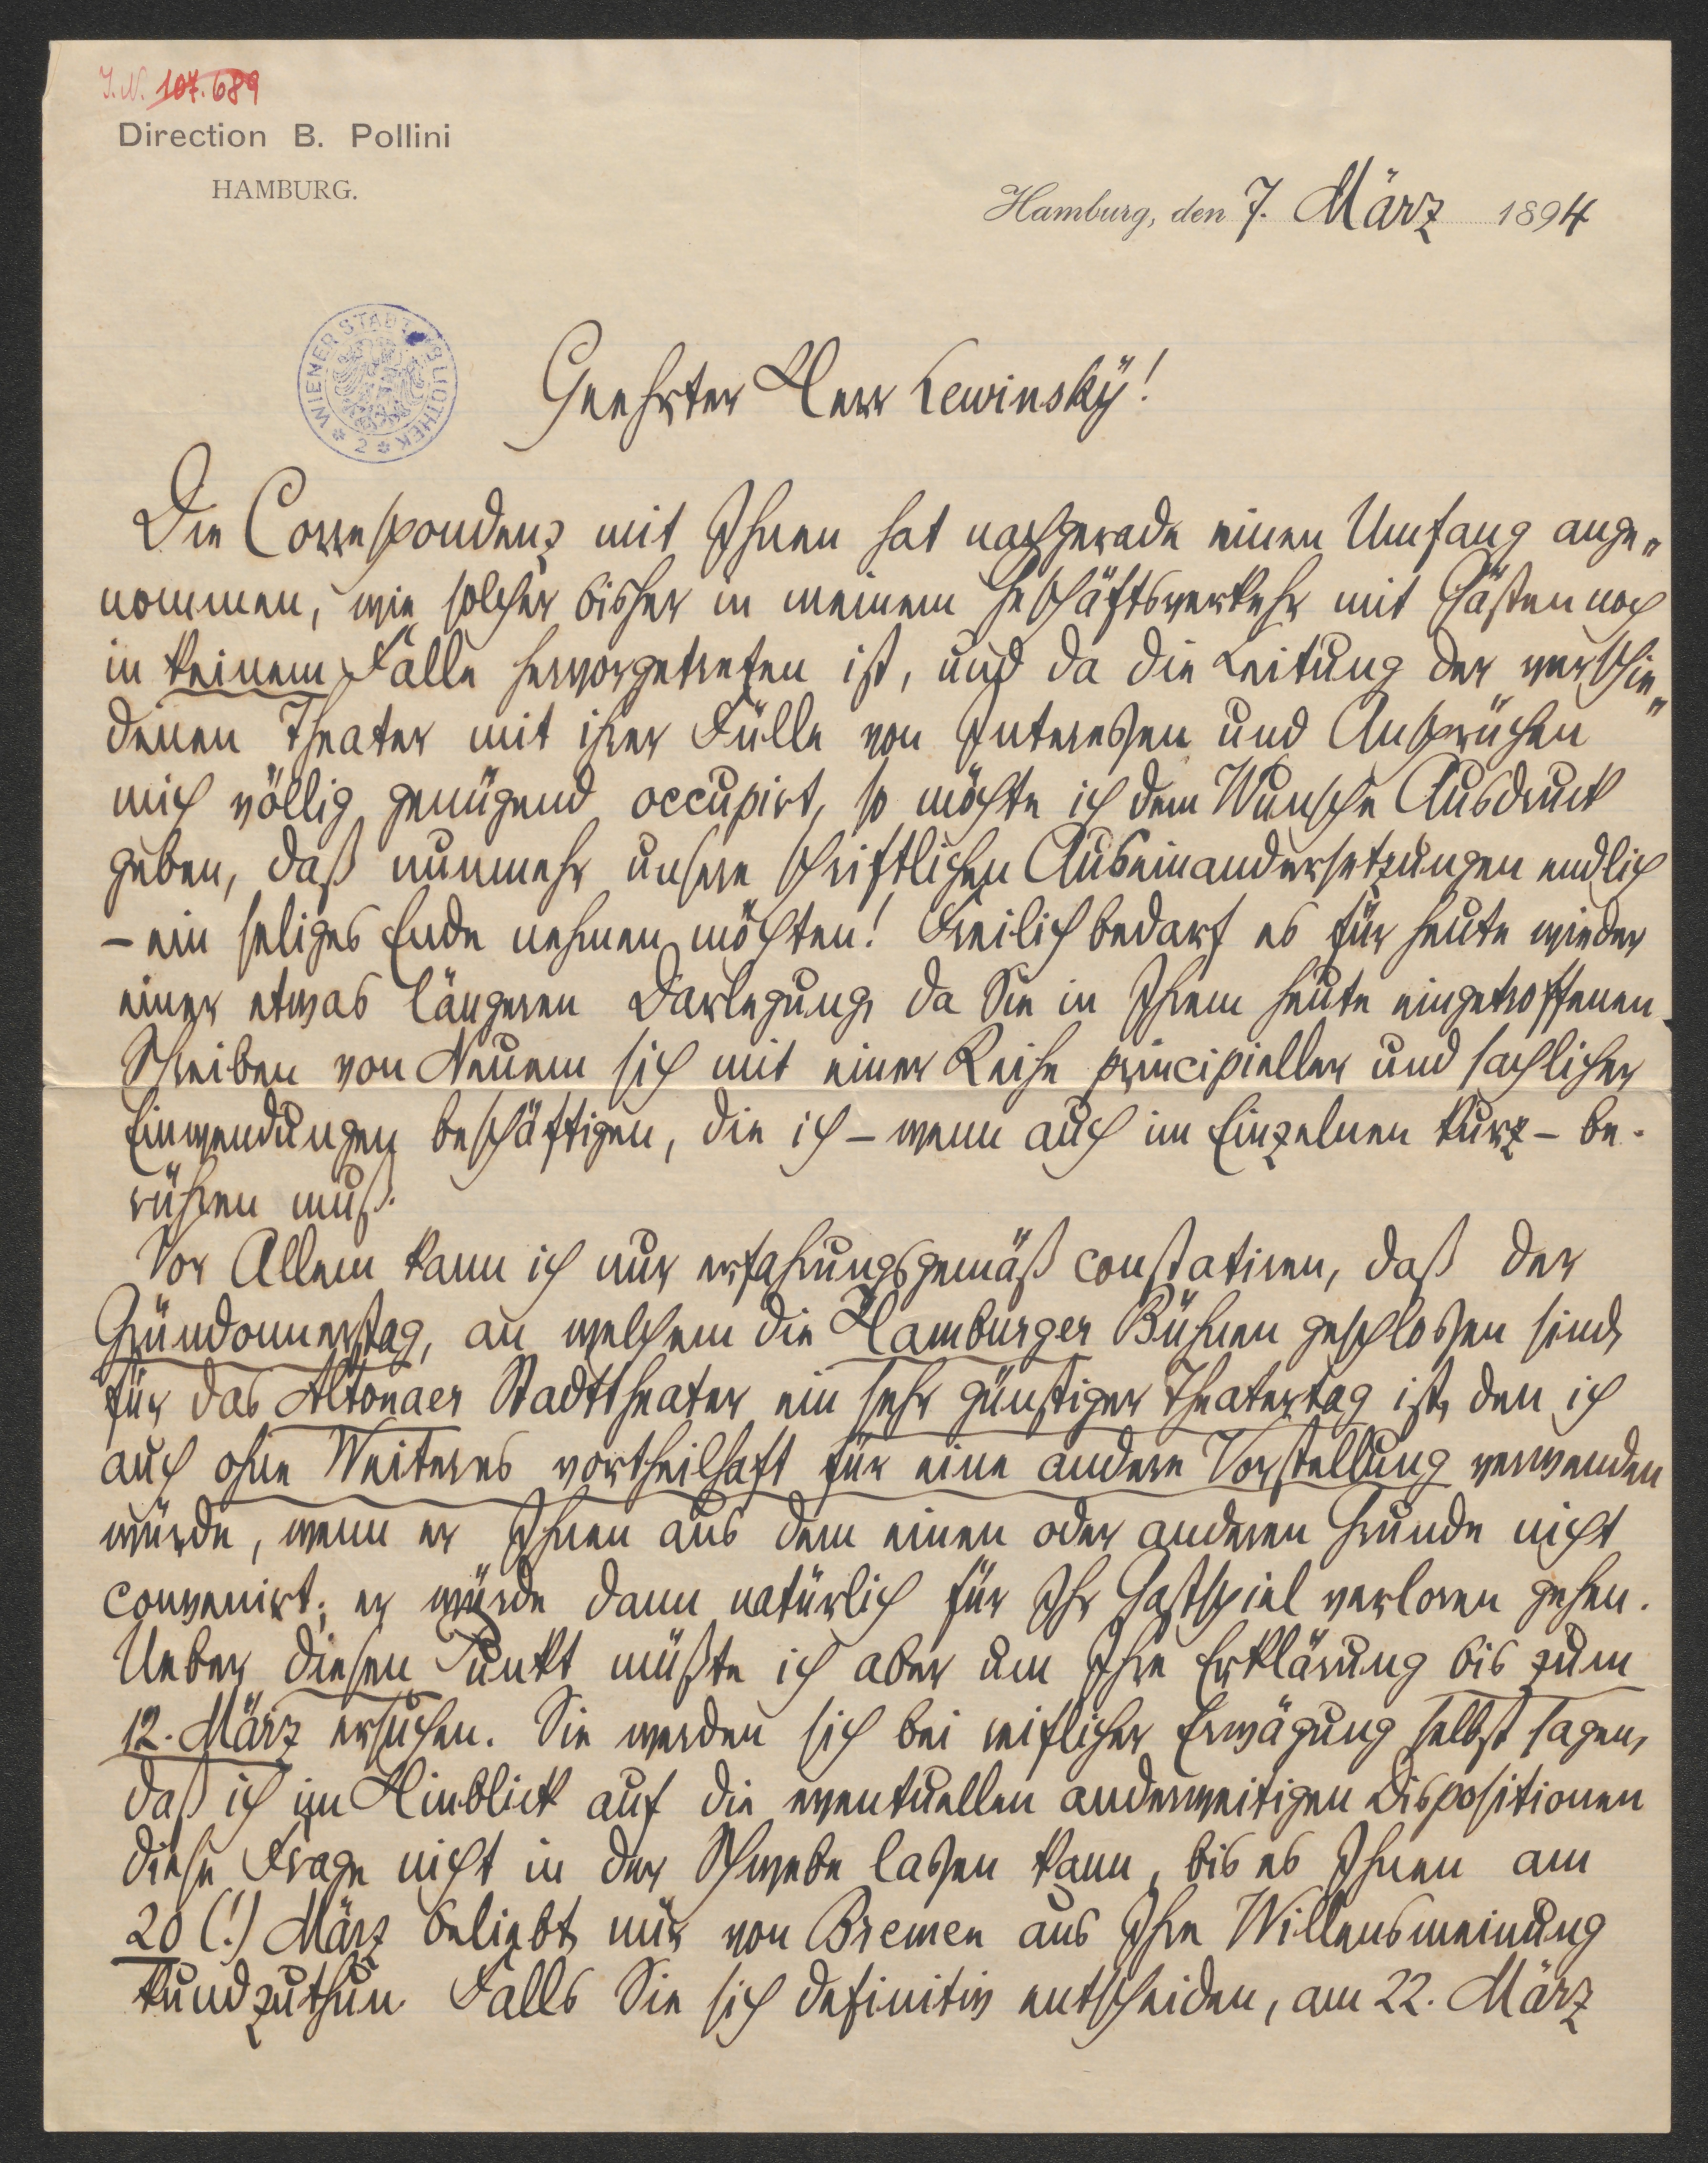 I.N. 107.689
Direction B. Pollini
HAMBURG.
Hamburg, den 7. März 1894
WIENER STADTBIBLIOTHEK
2
Geehrter Herr Lewinský!
Die Correspondenz mit Ihnen hat nachgerade einen Umfang ange„
nommen, wie solcher bisher in meinem Geschäftsverkehr mit Gästen noch
in keinem Falle hervorgetreten ist, und da die Leitung der verschie„
denen Theater mit ihrer Fülle von Interessen und Ansprüchen
mich völlig genügend occupirt, so möchte ich dem Wunsche Ausdruck
geben, daß nunmehr unsere schriftlichen Auseinandersetzungen endlich
– ein seliges Ende nehmen möchten! Freilich bedarf es für heute wieder
einer etwas längeren Darlegung, da Sie in Ihrem heute eingetroffenen
Schreiben von Neuem sich mit einer Reihe principieller und sachlicher
Einwendungen beschäftigen, die ich – wenn auch im Einzelnen kurz – be-
rühren muß.
Vor Allem kann ich nur erfahrungsgemäß constatiren, daß der
Gründonnerstag, an welchem die Hamburger Bühnen geschlossen sind,
für das Altonaer Stadttheater ein sehr günstiger Theatertag ist, den ich
auch ohne Weiteres vortheilhaft für eine andere Vorstellung verwenden
würde, wenn er Ihnen aus dem einen oder anderen Grunde nicht
convenirt; er würde dann natürlich für Ihr Gastspiel verloren gehen.
Ueber diesen Punkt müßte ich aber um Ihre Erklärung bis zum
12. März ersuchen. Sie werden sich bei reiflicher Erwägung selbst sagen,
daß ich im Hinblick auf die eventuellen anderweitigen Dispositionen
diese Frage nicht in der Schwebe lassen kann, bis es Ihnen am
20 (!) März beliebt, mir von Bremen aus Ihre Willensmeinung
kundzuthun. Falls Sie sich definitiv entscheiden, am 22. März